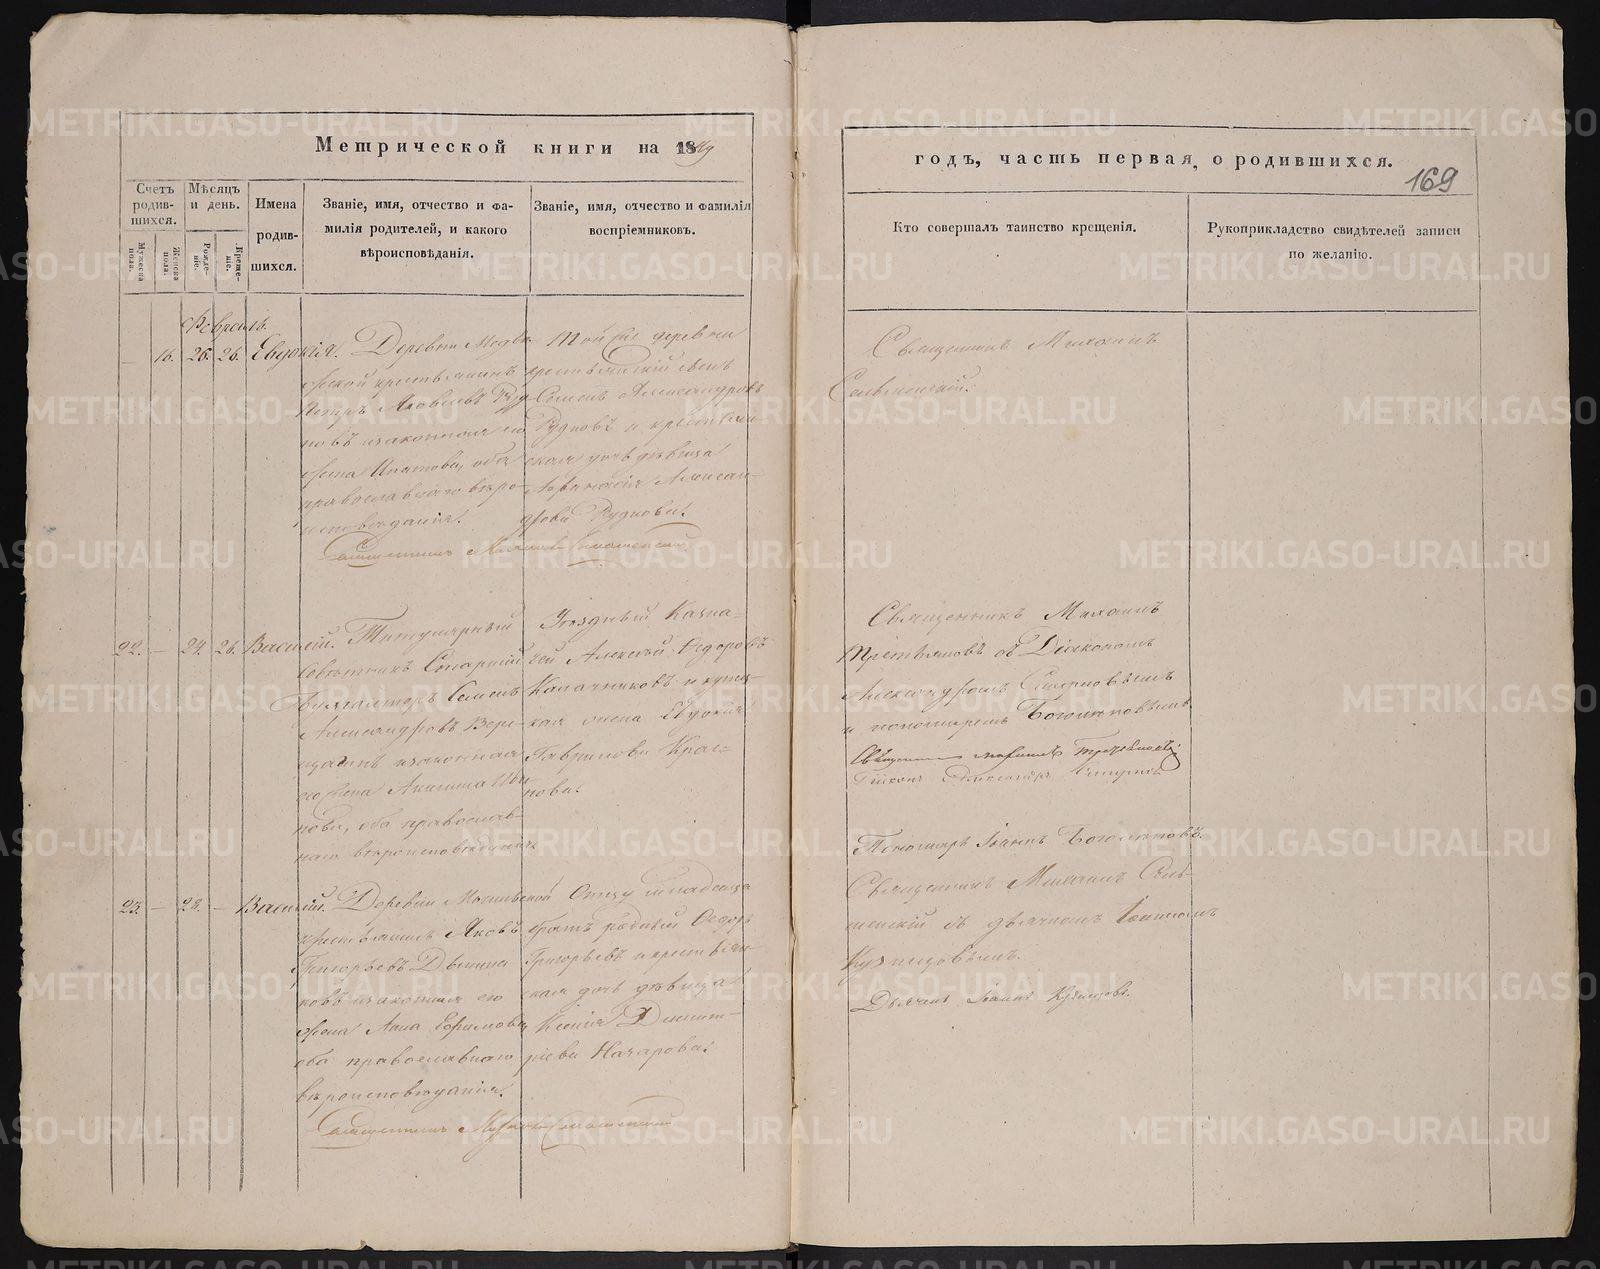 Метрической книги на 1849
годъ, часть первая, о родившихся.
169
Счетъ родив-шихся.
Мужеска пола.
Женска пола.
Мѣсяцъ и день.
Рожде-ніе.
Креще-ніе.
Имена
родив-
шихся.
Званіе, имя, отчество и фа-
милія родителей, и какого
вѣроисповѣданія.
Званіе, имя, отчество и фамилія
воспріемниковъ.
Кто совершалъ таинство крещенія.
Рукоприкладство свидѣтелей записи
по желанію.
Февраль.
16. 25. 26. Евдокія.
Деревни
крестьянинъ
Петръ Яковлевъ Руд-
новъ и законная его
жена оба
православнаго вѣро-
исповѣданія.
Той же деревни
крестьянскій сынъ
Семенъ Александровъ
Рудновъ и крестьян-
ская дочь дѣвица
Алексан-
дрова Руднова.
Священникъ Михаилъ
Священникъ Михаилъ
22. — 24. 26. Василій.
Титулярный
Совѣтникъ Старшій
Бухгалтеръ Семенъ
Александровъ Вере-
щагинъ и законная
его жена Ива-
нова, оба православ-
наго вѣроисповѣданія.
Уѣздный Казна-
чей Алексѣй Федоровъ
Калачниковъ и купе-
кая жена Евдокія
Гаврилова
Священникъ Михаилъ
Третьяковъ съ Діакономъ
Александромъ Смирновымъ
и пономаремъ
Священникъ Михаилъ Третьяковъ
Діаконъ Александръ Смирновъ
Пономарь Іоаннъ
23. — 28. — Василій.
Деревни
крестьянинъ Яковъ
Григорьевъ
ковъ и законная его
жена Анна Ефимова
оба православнаго
вѣроисповѣданія.
Отцу младенца
братъ родный Федоръ
Григорьевъ и крестьян-
ская дочь дѣвица
Ксенія Димит-
ріева Начарова.
Священникъ Михаилъ
Священникъ Михаилъ
съ дьячкомъ Іоанномъ
Кузнецовымъ.
Дьячекъ Іоаннъ Кузнецовъ.
METRIKI.GASO-URAL.RU